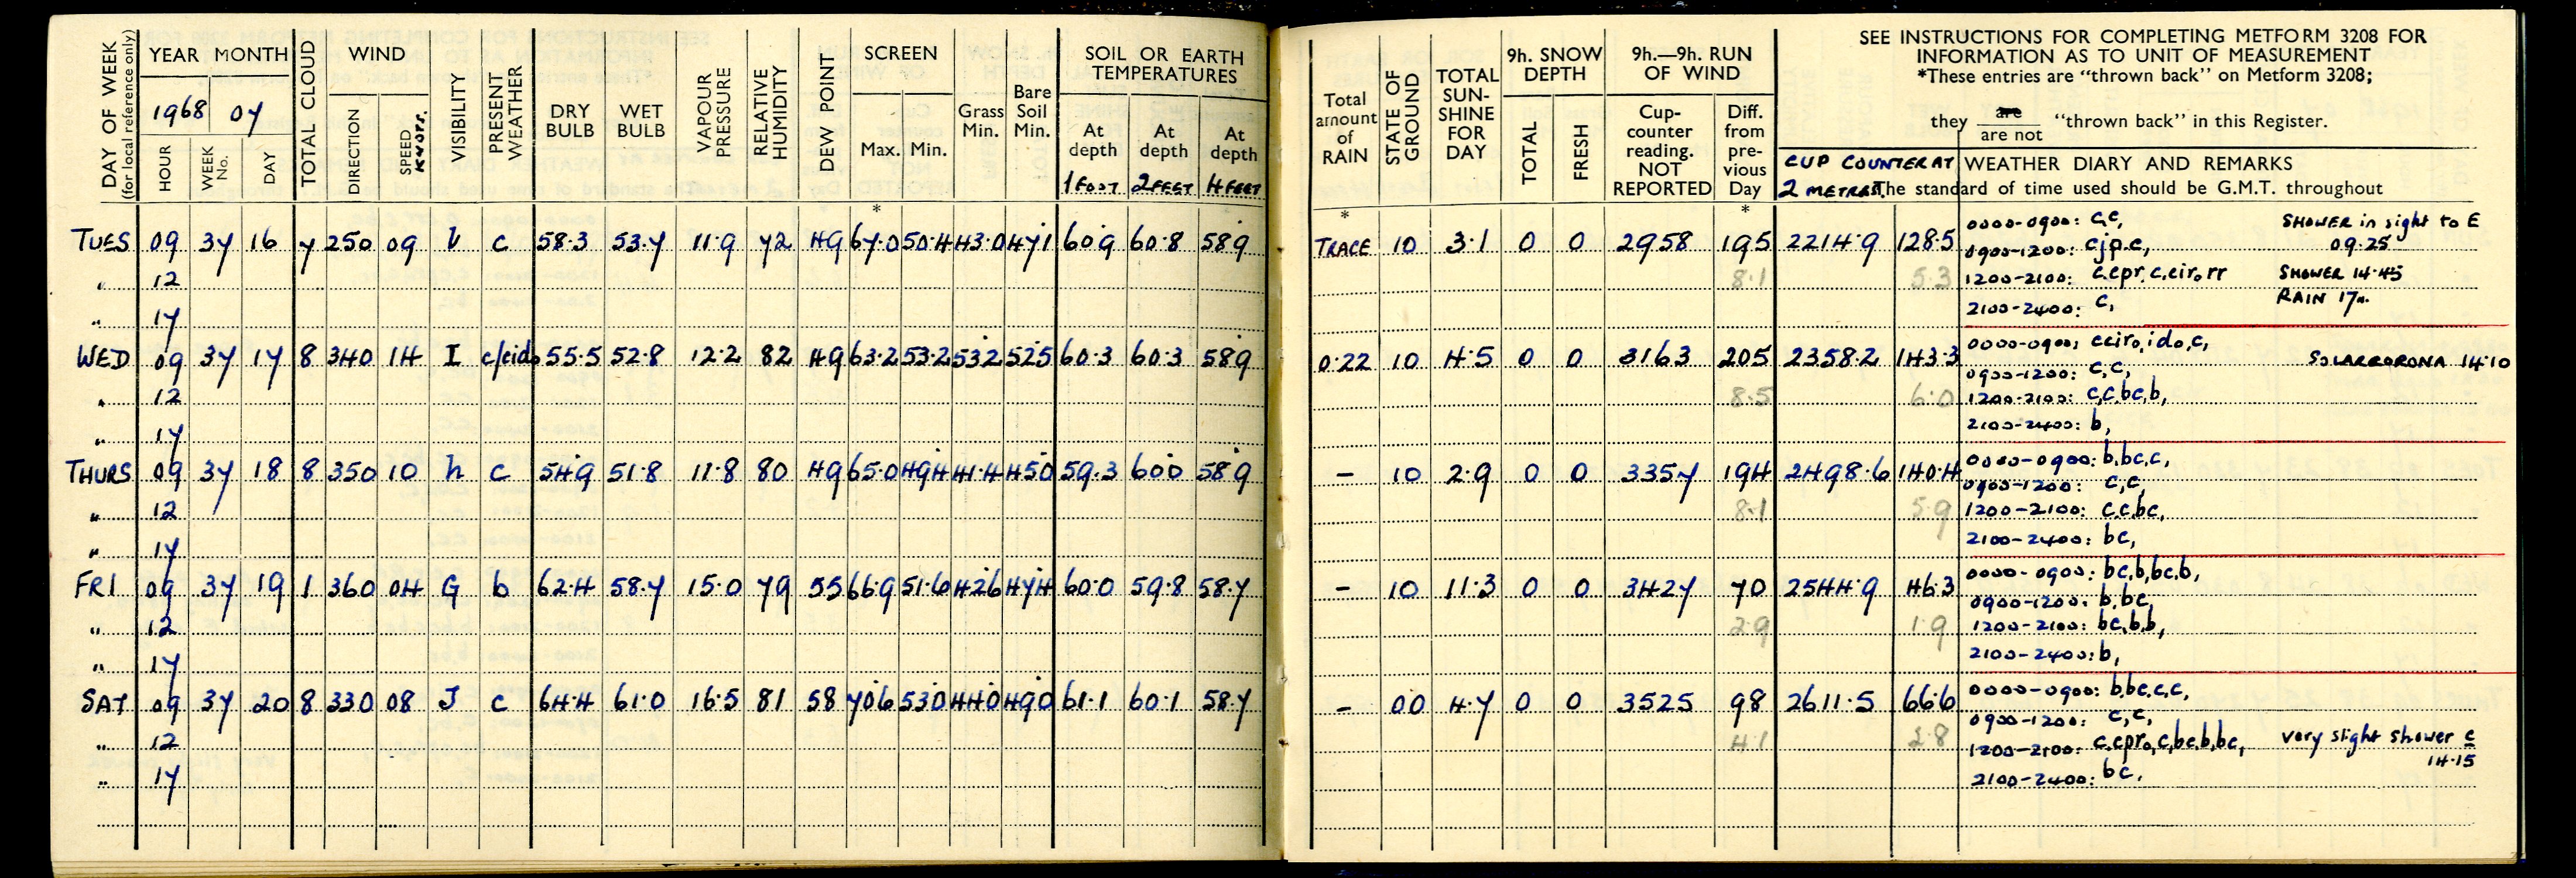 DAY OF WEEK (for local reference only)
YEAR MONTH
1968 07
HOUR WEEK No. DAY
TOTAL CLOUD
WIND
DIRECTION SPEED KNOTS.
VISIBILITY
PRESENT WEATHER
DRY BULB
WET BULB
VAPOUR PRESSURE
RELATIVE HUMIDITY
DEW POINT
SCREEN
Max. Min.
Grass Min.
Bare Soil Min.
SOIL OR EARTH TEMPERATURES
At depth 1 FOOT
At depth 2 FEET
At depth 4 FEET
*
TUES 09 37 16 7 250 09 V c 58.3 53.7 11.9 72 49 67.0 50.4 43.0 47.1 60.9 60.8 58.9
" 12
" 17
WED 09 37 17 8 340 14 I c/eido 55.5 52.8 12.2 82 49 63.2 53.2 53.2 52.5 60.3 60.3 58.9
" 12
" 17
THURS 09 37 18 8 350 10 h c 54.9 51.8 11.8 80 49 65.0 49.4 41.4 45.0 59.3 60.0 58.9
" 12
" 17
FRI 09 37 19 1 360 04 G b 62.4 58.7 15.0 79 55 66.9 51.6 42.6 47.4 60.0 59.8 58.7
" 12
" 17
SAT 09 37 20 8 330 08 J c 64.4 61.0 16.5 81 58 70.6 53.0 44.0 49.0 61.1 60.1 58.7
" 12
" 17
Total amount of RAIN
STATE OF GROUND
TOTAL SUN-SHINE FOR DAY
9h. SNOW DEPTH
TOTAL FRESH
9h.—9h. RUN OF WIND
Cup-counter reading. NOT REPORTED
Diff. from pre-vious Day
SEE INSTRUCTIONS FOR COMPLETING METFORM 3208 FOR
INFORMATION AS TO UNIT OF MEASUREMENT
*These entries are "thrown back" on Metform 3208;
they are / are not "thrown back" in this Register.
CUP COUNTER AT 2 METRES.
WEATHER DIARY AND REMARKS
The standard of time used should be G.M.T. throughout
* *
TRACE 10 3.1 0 0 2958 195 2214.9 128.5
8.1 5.3
0000-0900: c,c,
0900-1200: cjp.c,
1200-2100: c.cpr.c,ciro,rr
2100-2400: c,
SHOWER in sight to E
09.25
SHOWER 14.45
RAIN 17
0.22 10 4.5 0 0 3163 205 2358.2 143.3
8.5 6.0
0000-0900: cciro,ido,c,
0900-1200: c,c,
1200-2100: c,c,bc,b,
2100-2400: b,
SOLAR CORONA 14.10
- 10 2.9 0 0 3357 194 2498.6 140.4
8.1 5.9
0000-0900: b,bc,c,
0900-1200: c,c,
1200-2100: c,c,bc,
2100-2400: bc,
- 10 11.3 0 0 3427 70 2544.9 46.3
2.9 1.9
0000-0900: bc,b,bc,b,
0900-1200: b,bc,
1200-2100: bc,b,b,
2100-2400: b,
- 00 4.7 0 0 3525 98 2611.5 66.6
4.1 2.8
0000-0900: b,bc,c,c,
0900-1200: c,c,
1200-2100: c,cpro,c,bc,b,bc,
2100-2400: bc,
very slight shower c
14.15